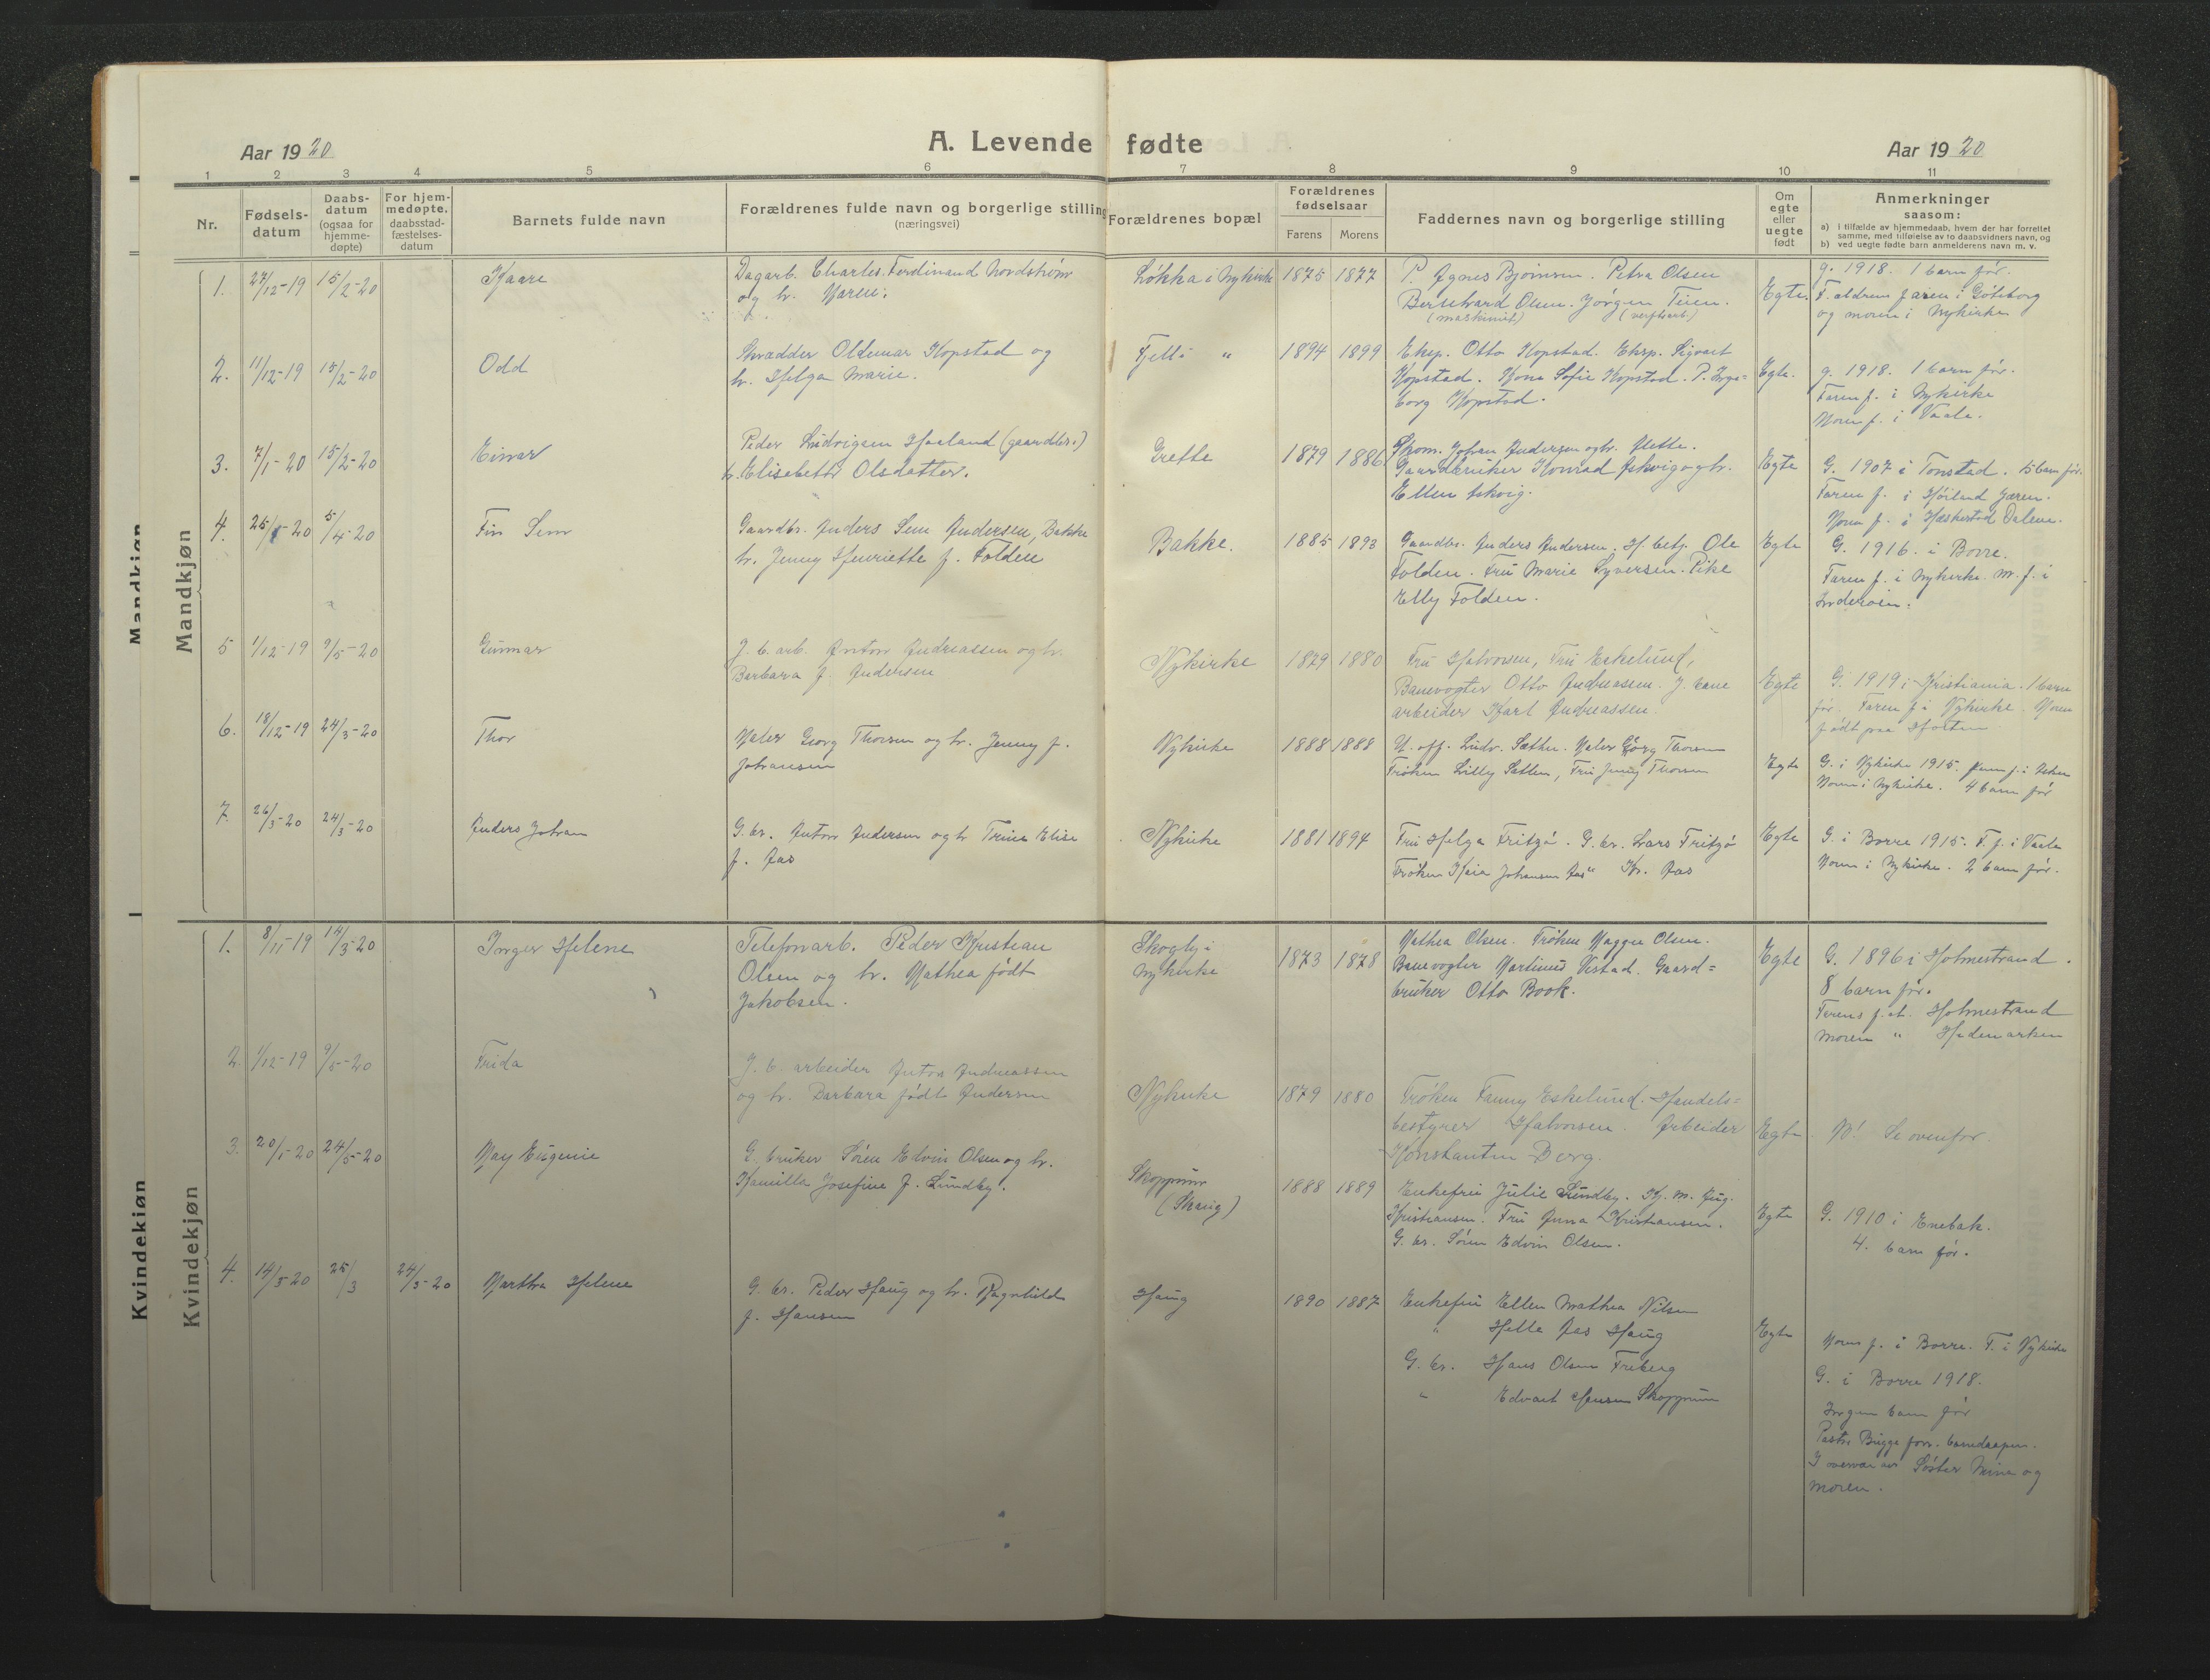 A. Levende fødte
Aar 1920
Aar 1920
1 2 3 4 5 6 7 8 9 10 11
Nr.
Fødsels-
datum
Daabs-
datum
(ogsaa for
hjemme-
døpte)
For hjem-
medøpte.
daabsstad-
fæstelses-
datum
Barnets fulde navn
Forældrenes fulde navn og borgerlige stilling
(næringsvei)
Forældrenes bopæl
Forældrenes
fødselsaar
Farens Morens
Faddernes navn og borgerlige stilling
Om
egte
eller
uegte
født
Anmerkninger
saasom:
a) i tilfælde av hjemmedaab, hvem der har forrettet
samme, med tilføielse av to daabsvidners navn, og
b) ved uegte fødte barn anmelderens navn m. v.
Mandkjøn
Mandkjøn
1. 27/12-19 15/2-20
Kaare
Dagarb. Charles Ferdinand Nordstrøm
og h. Maren.
Løkka i Nykirke
1875 1877
P. Agnes Bjørnsen. Petra Olsen
Bernhard Olsen. Jørgen Teien.
(maskinist) (verftsarb)
Egte.
g. 1918. 1 barn før.
F. aldrem faren i Göteborg
og moren i Nykirke
2. 11/12-19 15/2-20
Odd
Skrædder Oldemar Kopstad og
h. Helga Marie.
Fjelli "
1894 1899
Eksp. Otto Kopstad. Eksp. Sigvart
Kopstad. Kona Sofie Kopstad. P. Inge=
borg Kopstad.
Egte.
g. 1918. 1 barn før.
Faren f. i Nykirke
Moren f. i Vaale.
3. 7/1-20 15/2-20
Einar
Peder Ludvigsen Haaland (gaardbr.)
h. Elisebeth Olsdatter.
Grette
1879 1886
Skom. Johan Andersen og h. Mette.
Gaardbruker Konrad Askvig og h.
Ellen Askvig.
Egte
G. 1907 i Tonstad. 5 barn før.
Faren f. i Høiland Jæren.
Moren f. i Heskestad Dalene.
4. 25/1-20 5/4-20
Fin Sem
Gaardbr. Anders Sem Andersen, Bakke
h. Jenny Henriette f. Folden
Bakke.
1885 1893
Gaardbr. Anders Andersen. H. betj. Ole
Folden. Fru Marie Syversen. Pike
Elly Folden.
Egte
G. 1916. i Borre.
Faren f. i Nykirke. M. f. i
Inderøien.
5 1/12-19 9/5-20
Gunnar
J. b. arb. Anton Andreassen og h.
Barbara f. Andersen
Nykirke
1879 1880
Fru Halvorsen, Fru Eskelund,
Banevogter Otto Andreassen. J. bane
arbeider Karl Andreassen.
Egte
G. 1919 i Kristiania. 1 barn
før. Faren f. i Nykirke. Moren
født paa Holten
6. 18/12-19 24/3-20
Thor
Maler Georg Thorsen og h. Jenny f.
Johansen
Nykirke
1888 1888
U. off. Ludv. Sæther. Maler Georg Thorsen
Frøken Lilly Sæther, Fru Jenny Thorsen
Egte
G. i Nykirke 1915. Faren f. i
Moren i Nykirke. 4 barn før
7. 26/3-20 24/3-20
Anders Johan
G. br. Anton Andersen og h. Trine Elise
f. Aas
Nykirke
1881 1894
Fru Helga Fritzø. G. br. Lars Fritzø
Frøken Johansen Aas" Kr. Aas
Egte
G. i Borre 1915. F. f. i Vaale
Moren i Nykirke. 2 barn før.
Kvindekjøn
Kvindekjøn
1. 8/11-19 14/3-20
Inger Helene
Telefonarb. Peder Kristian
Olsen og h. Mathea født
Jakobsen.
Skogly i
Nykirke
1873 1878
Mathea Olsen. Frøken Maggie Olsen.
Banevogter Martinus Vestad. Gaard=
bruker Otto Book.
Egte
G. 1896 i Holmestrand.
8 barn før.
Farens f. st. Holmestrand
Moren " Hedemarken
2. 1/12-19 9/5-20
Frida
J. b. arbeider Anton Andreassen
og h. Barbara født Andersen
Nykirke
1879 1880
Frøken Fanny Eskelund. Handels=
bestyrer Halvorsen. Arbeider
Konstantin Berg.
Egte
N! Se ovenfor.
3. 20/1-20 24/5-20
May Eugenie
G. bruker Søren Edvin Olsen og h.
Kamilla Josefine f. Lundby.
Skoppum
(Skaug)
1888 1889
Enkefru Julie Lundby. Kj. m. Aug.
Kristiansen. Fru Anna Kristiansen.
G. br. Søren Edvin Olsen.
Egte
G. 1910 i Enebak.
4. barn før.
4. 14/3-20 25/3 24/5-20
Martha Helene
G. br. Peder Haug og h. Ragnhild
f. Hansen
Haug
1890 1887
Enkefru Ellen Mathea Nilsen
" Helle Aas Haug
G. br. Hans Olsen Freberg
" Edvart Hansen Skoppum
Egte
Moren f. i Borre. F. i Nykirke
G. i Borre 1918.
Ingen barn før
Pastor Bugge forr. barnedaapen.
I overvær av Søster Mina og
moren.